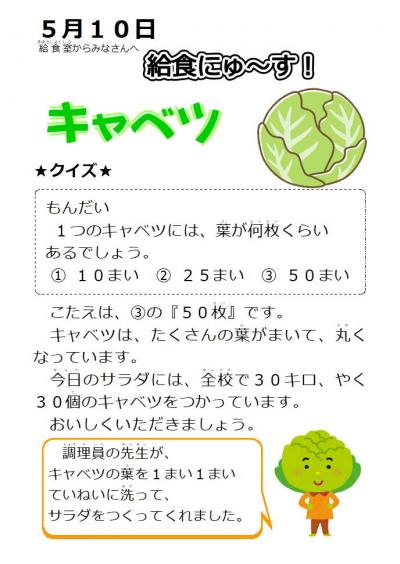 5月10日
給食室からみなさんへ
給食にゅ～す！
キャベツ
★クイズ★
もんだい
１つのキャベツには、葉が何枚くらい
あるでしょう。
① １０まい ② ２５まい ③ ５０まい
こたえは、③の『５０枚』です。
キャベツは、たくさんの葉がまいて、丸く
なっています。
今日のサラダには、全校で３０キロ、やく
３０個のキャベツをつかっています。
おいしくいただきましょう。
調理員の先生が、
キャベツの葉を１まい１まい
ていねいに洗って、
サラダをつくってくれました。